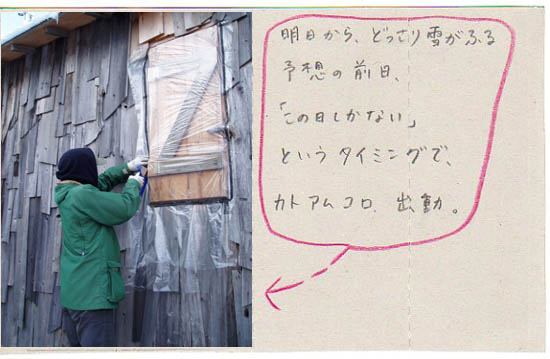 明日から、どっさり雪がふる
予想の前日、
「この日しかない」
というタイミングで、
カトアムコロ、出動。